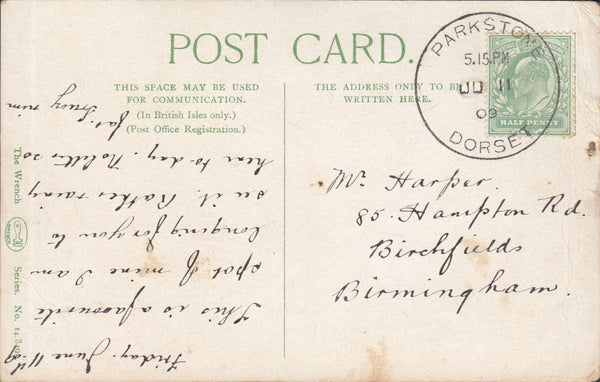 POST CARD.
THIS SPACE MAY BE USED
FOR COMMUNICATION.
(In British Isles only.)
(Post Office Registration.)
THE ADDRESS ONLY TO BE
WRITTEN HERE.
PARKSTONE
5.15.PM
JU 11
09
DORSET
HALF PENNY
Mr Harper.
85. Hampton Rd.
Birchfields
Birmingham.
Friday. June 11th 09
This is a favourite
spot of mine I am
longing for you to
see it. Rather rainy
here to-day. No letter so
far.
The Wrench Series. No.